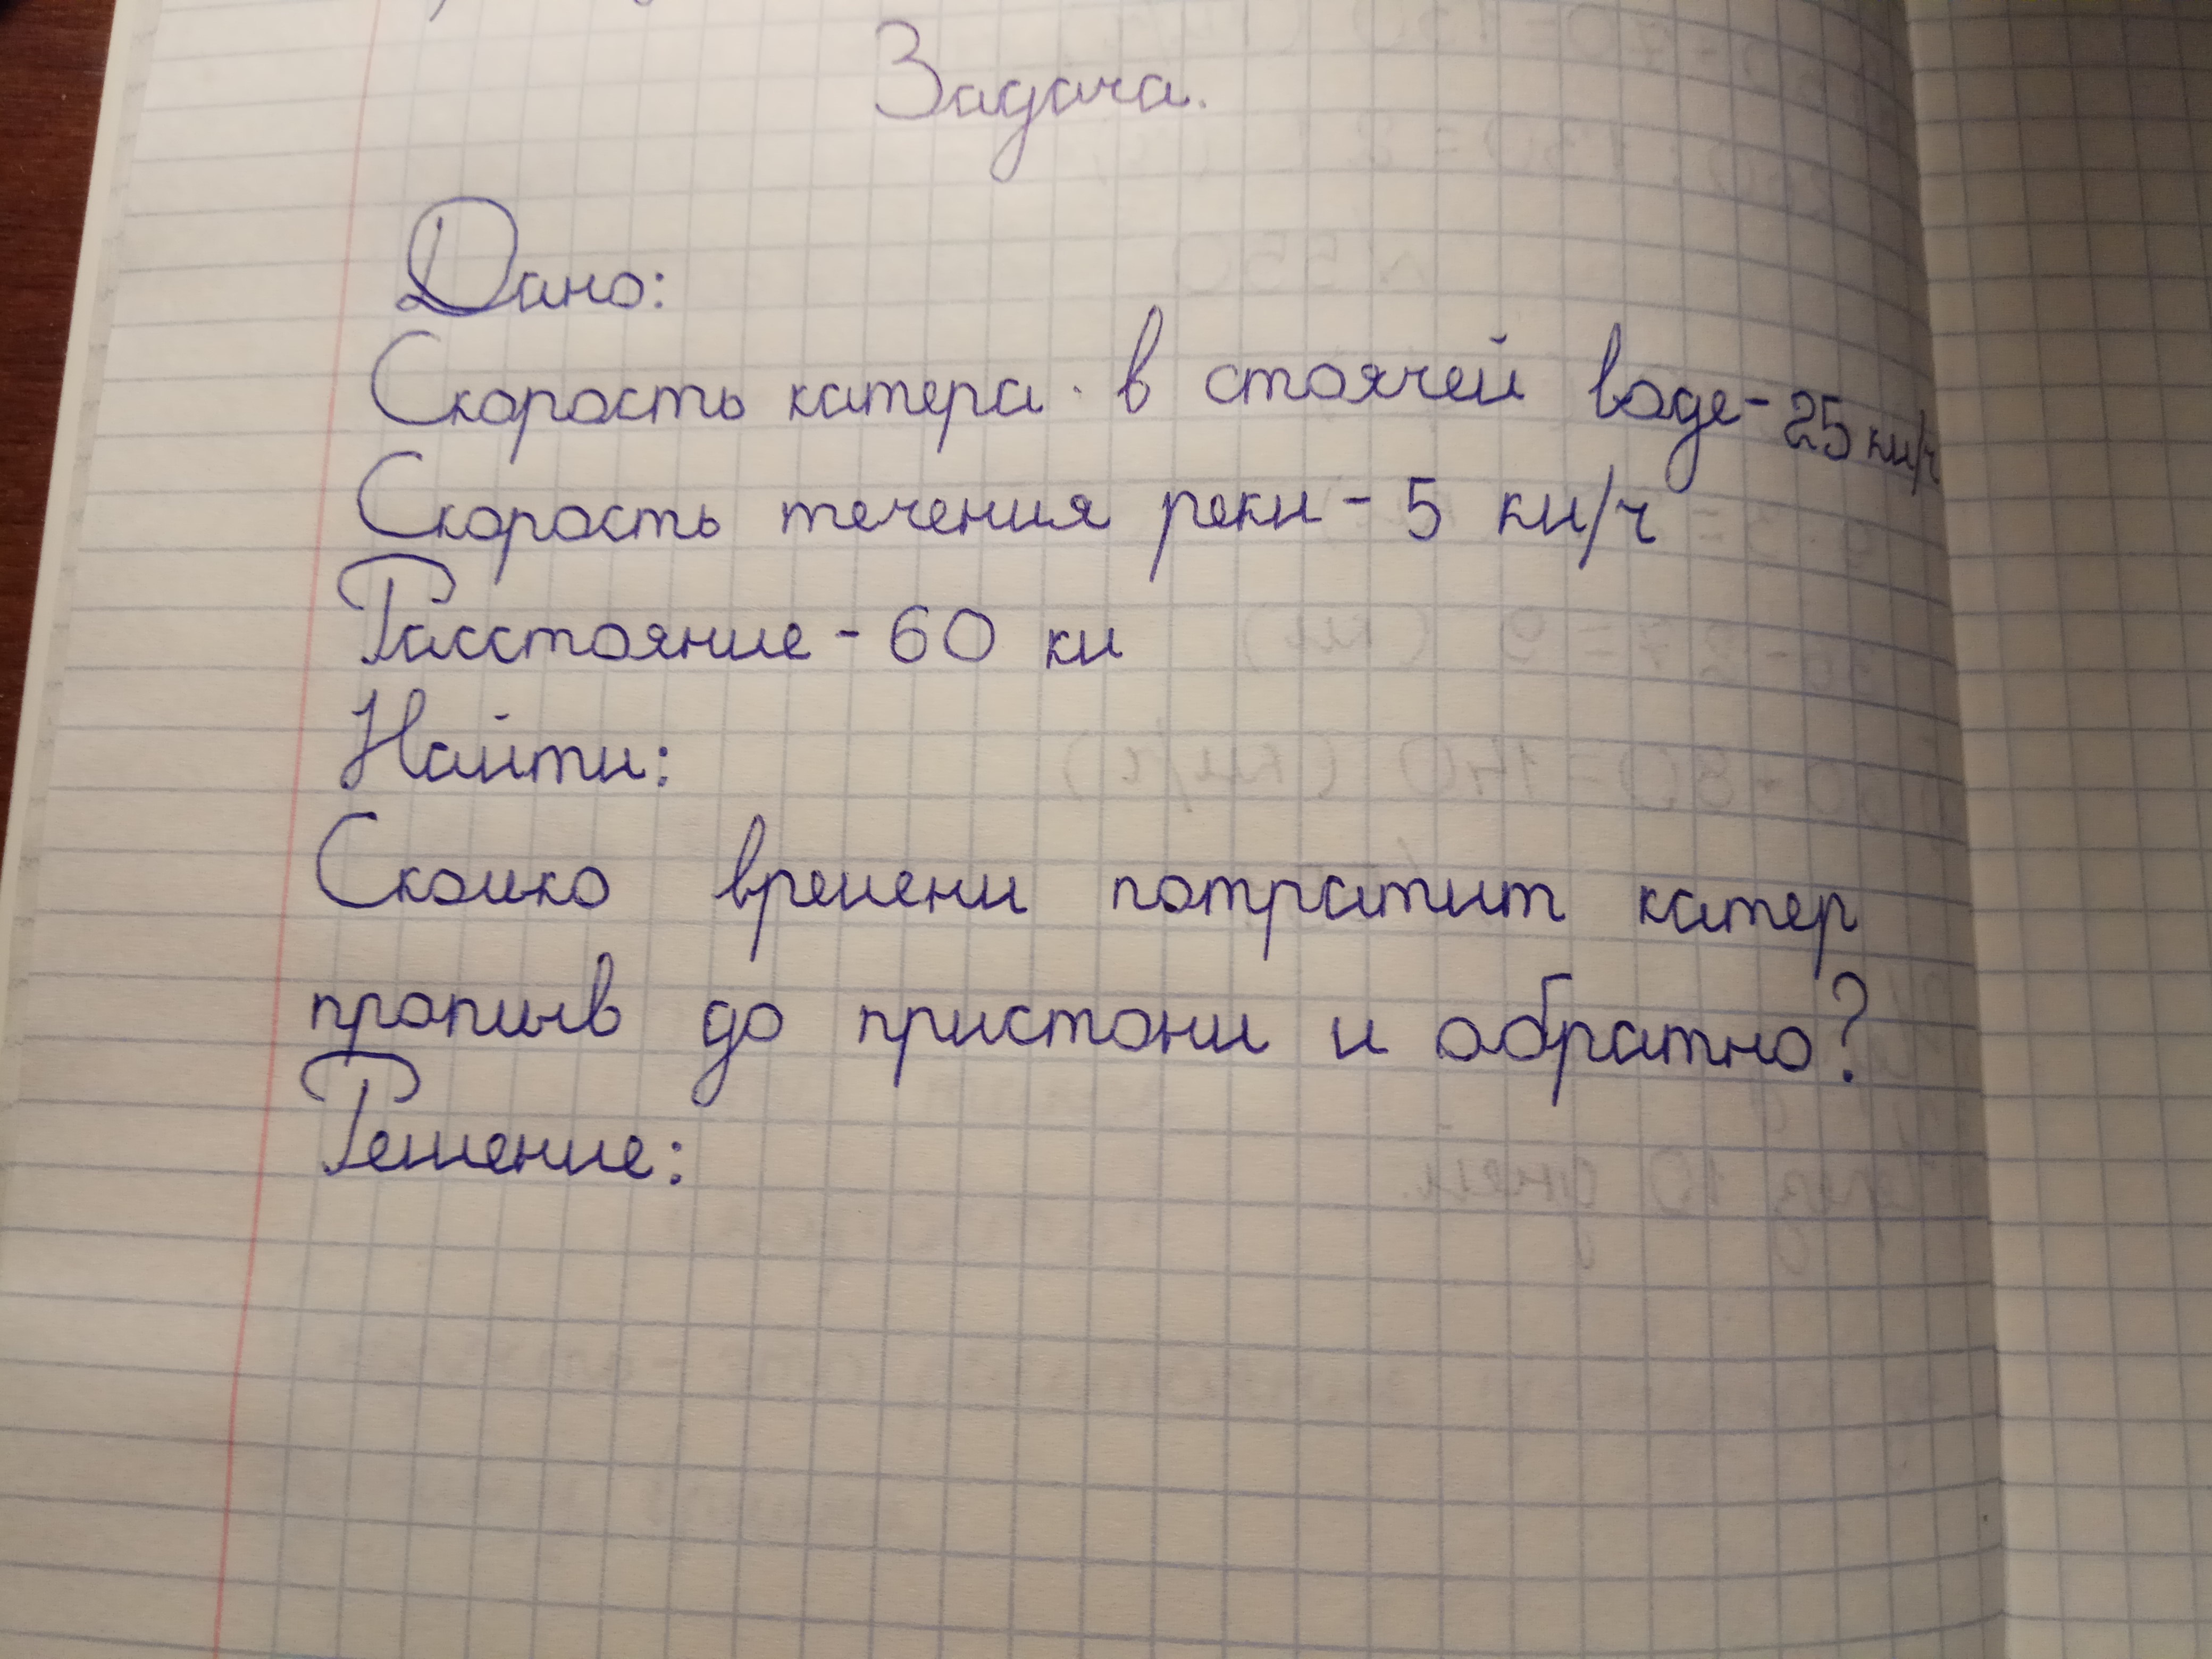 Задача.
Дано:
Скорость катера в стоячей воде - 25 км/ч
Скорость течения реки - 5 км/ч
Расстояние - 60 км
Найти:
Сколько времени потратит катер
проплыв до пристани и обратно?
Решение: